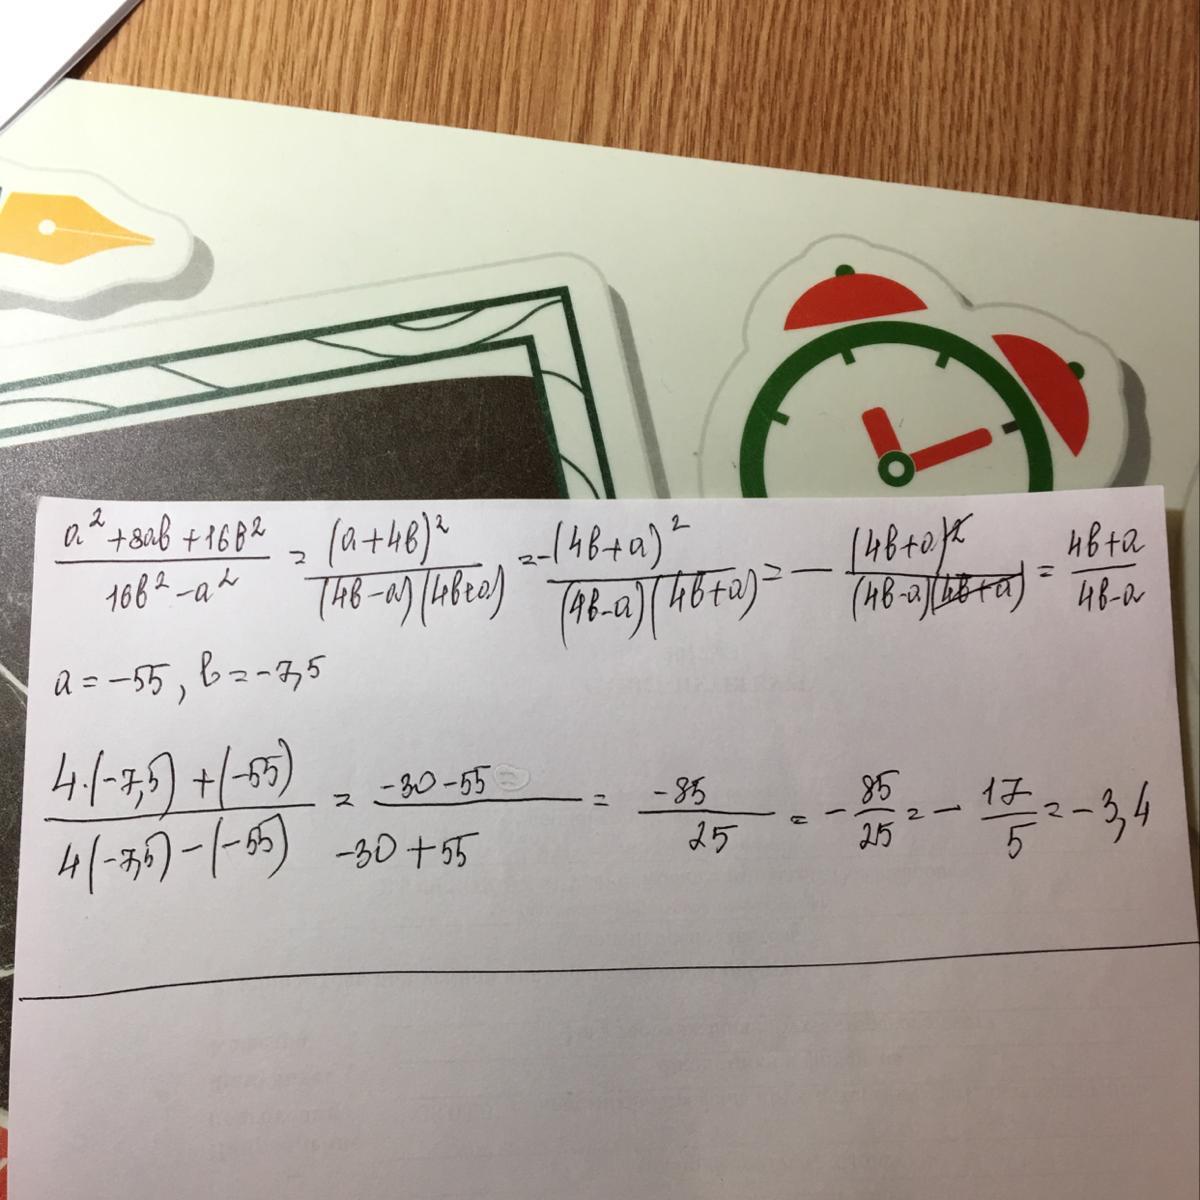 (a²+8ab+16b²)/(16b²-a²) = (a+4b)²/((4b-a)(4b+a)) = -(4b+a)²/((4b-a)(4b+a)) = - (4b+a)²/((4b-a)(4b+a)) = (4b+a)/(4b-a)
a = -55, b = -7,5
(4·(-7,5)+(-55))/(4(-7,5)-(-55)) = (-30-55)/(-30+55) = (-85)/25 = - 85/25 = - 17/5 = -3,4